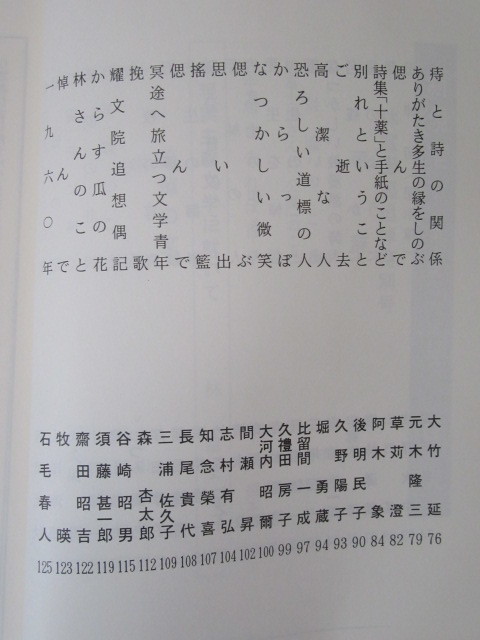 痔と詩の関係　大竹延 76
ありがたき多生の縁をしのぶ　元木隆三 79
偲んで　草苅澄 82
詩集「十薬」と手紙のことなど　阿木象 84
別れということ　後明民子 90
ご逝去　久野陽子 93
高潔な人　堀勇蔵 94
恐ろしい道標の人　比留間一成 97
からっぽ　久禮田房子 99
なつかしい微笑　大河内昭爾 100
偲ぶ　間瀬昇 102
思い出　志村有弘 104
搖籃　知念榮喜 107
偲んで　長尾貴代 108
冥途へ旅立つ文学青年　三浦佐久子 109
挽歌　森杏太郎 112
耀文院追想偶記　谷崎昭男 115
からす瓜の花　須藤甚一郎 119
林さんのこと　齋田昭吉 122
悼んで　牧暎 123
一九六〇年　石毛春人 125